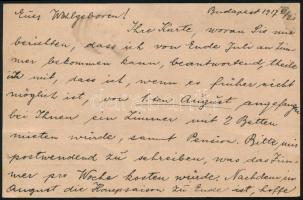 Euer Wohlgeboren! Budapest 1917
Ihre Karte, woran Sie mir
berichten, dass ich von Ende Juli an Zim-
mer bekommen kann, beantwortend, theile
ich mit, dass ich, wenn es früher nicht
möglich ist, vor 1-ten August angefangen
bei Ihnen ein Zimmer mit 2 Betten
mieten würde, samt Pension. Bitte mir
postwendend zu schreiben, was das Zim-
mer pro Woche kosten würde. Nachdem im
August die Hauptsaison zu Ende ist, hoffe